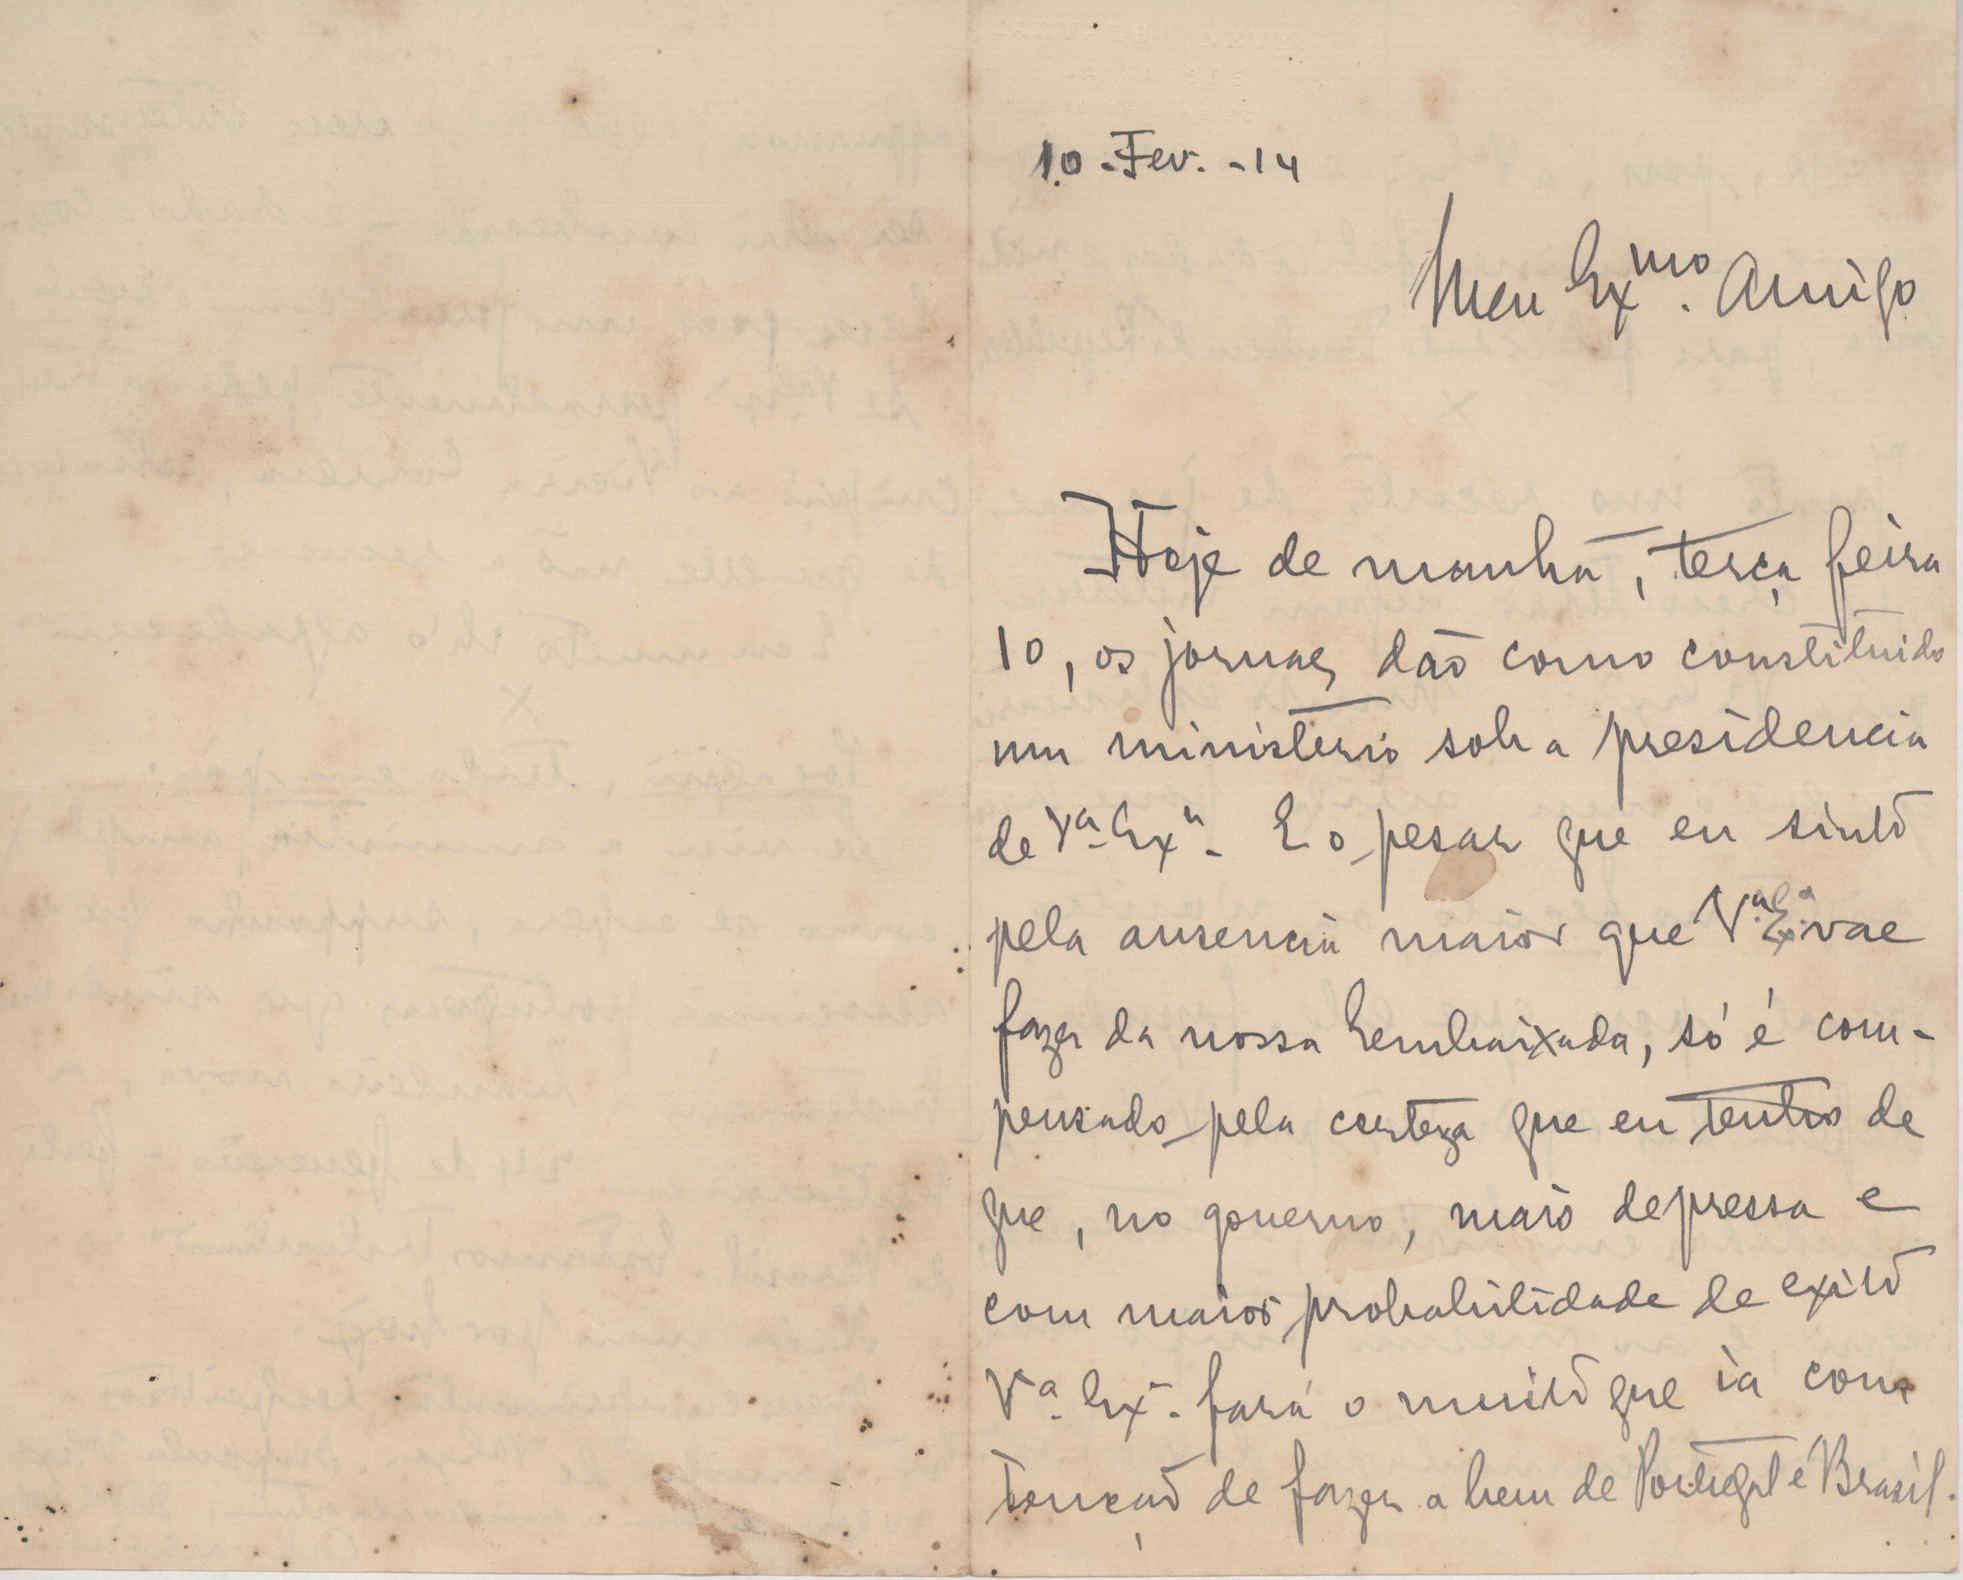 10-Fev.-14
Meu Ex.mo Amigo
Hoje de manhã, terça feira
10, os jornaes dão como constituido
um ministerio sob a presidencia
de V.a Ex.a E o pesar que eu sinto
pela ausencia maior que V.a Ex.a vae
fazer da nossa Embaixada, só é com-
pensado pela certeza que eu tenho de
que, no governo, mais depressa e
com maior probabilidade de exito
V.a Ex.a fará o muito que ia com
tenção de fazer a bem de Portugal e Brasil.